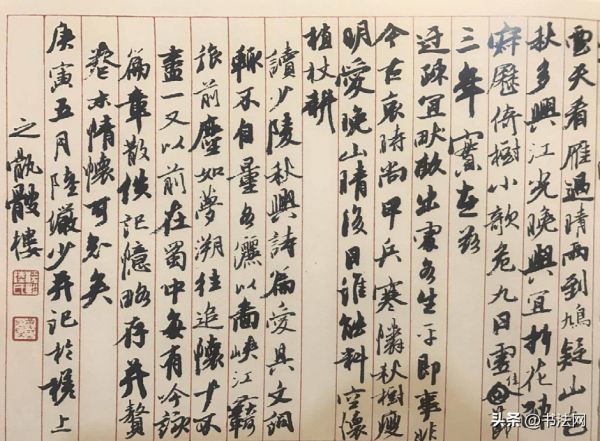 雪天看雁過晴雨到鳩疑山色
秋多興江光曉與宜折花
寂歷倚樹小欹危九日靈
三年實在茲
迂疎宜畎畝出處名生平即事非
今古哀時尚甲兵寒憐秋樹瘦
明愛晚山晴後日誰能料空懷
植杖耕
讀少陵秋興詩篇愛其文詞
輒不自量各儷以圖峽江羈
旅前塵如夢溯往追懷十不
盡一又以前在蜀中每有吟詠
篇章散佚記憶略存并贅
卷末情懷可知矣
庚寅五月陸儼少并記於滬上
之骩骳樓
头条 @书法网